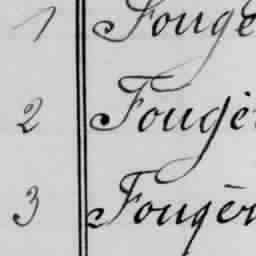 1 Fougè
2 Fougè
3 Fougèr